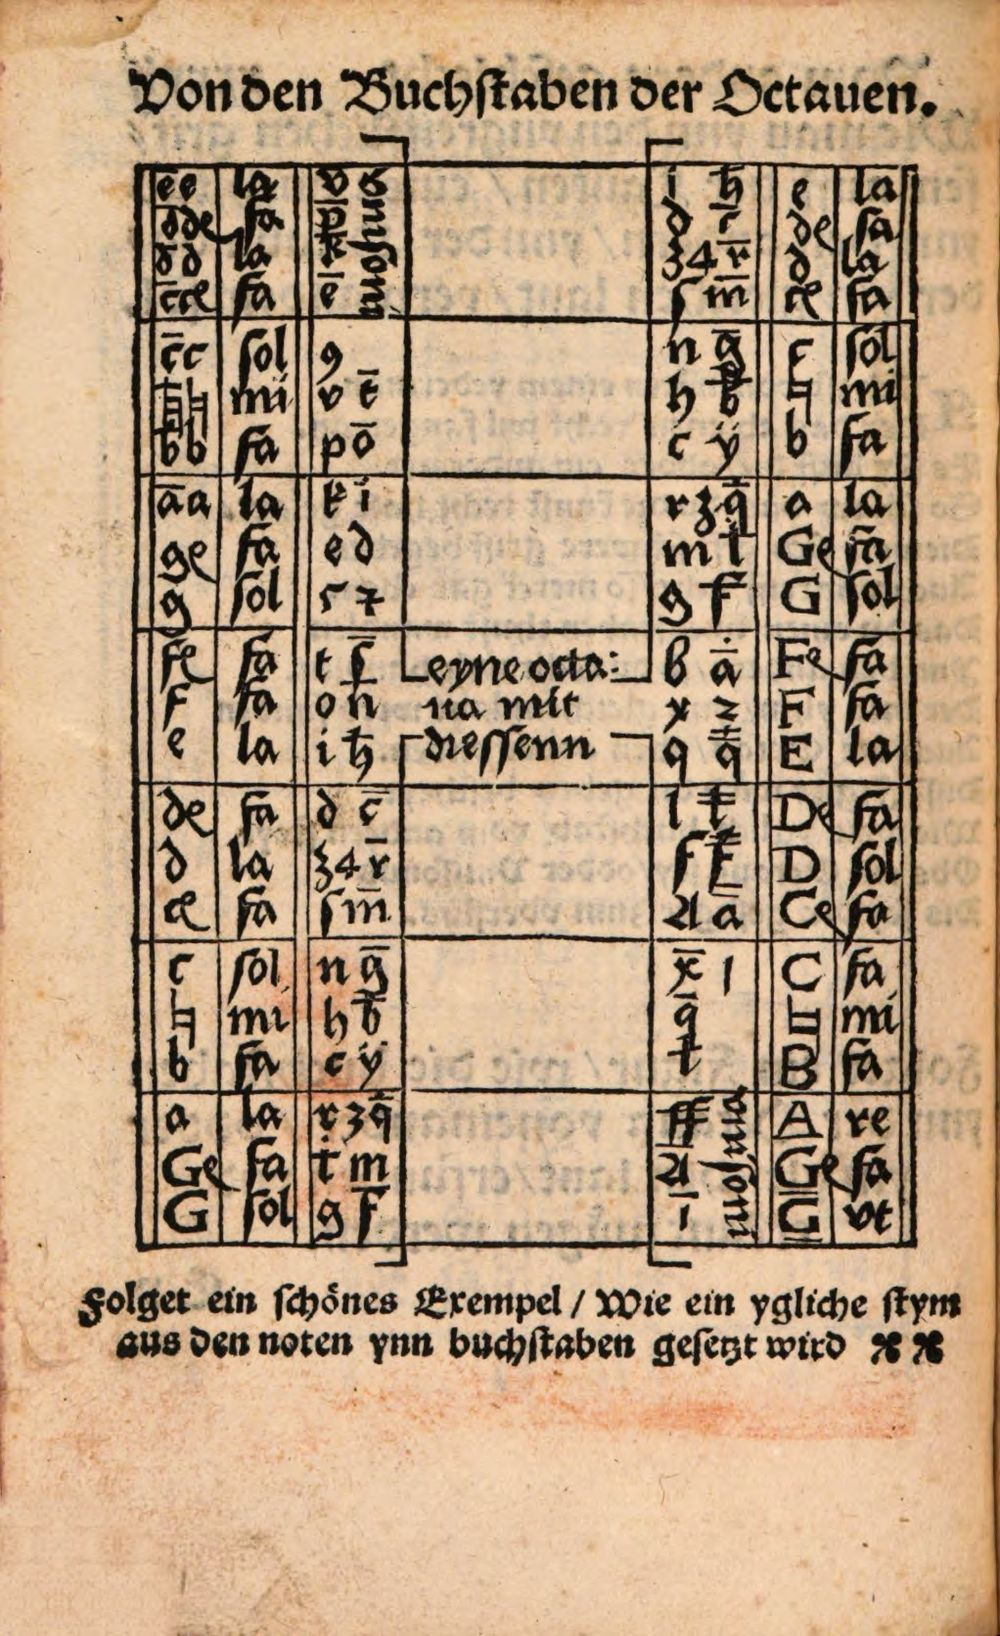 Von den Buchstaben der Octauen.
ēē la v 8 i ħ e la
d̄de fa p̄ d ꝛ̄ de fa
d̄d la k̄ unisonus ʒ 4 r̄ d la
c̄ce fa ē ſ m̄ ce fa
c̄c sol 9 n ḡ c sol
♮♮ mi v t̄ h b̄ ♮ mi
b̄b fa p ō c ÿ b fa
āa la k ī r ʒ q̄ a la
ge fa e d m t̄ Ge fa
g sol 5 7 g f̄ G sol
fe fa t ſ̄ eyne octa: b ā Fe fa
f fa o n ua mit x z F fa
e la i ħ diessenn q q̄ E la
de fa d c̄ l t̄ De fa
d la ʒ 4 r̄ ſ f̄ D sol
ce fa ſ m̄ A ā Ce fa
c sol n ḡ x̄ 1 C fa
♮ mi h b̄ q̄ ♮ mi
b fa c ÿ t B fa
a la r ʒ q̄ ff unisonus A re
Ge fa t m Ā Ge fa
G sol g f̄ ī G vt
Folget ein schönes Exempel / Wie ein ygliche stym
aus den noten ynn buchstaben gesetzt wird